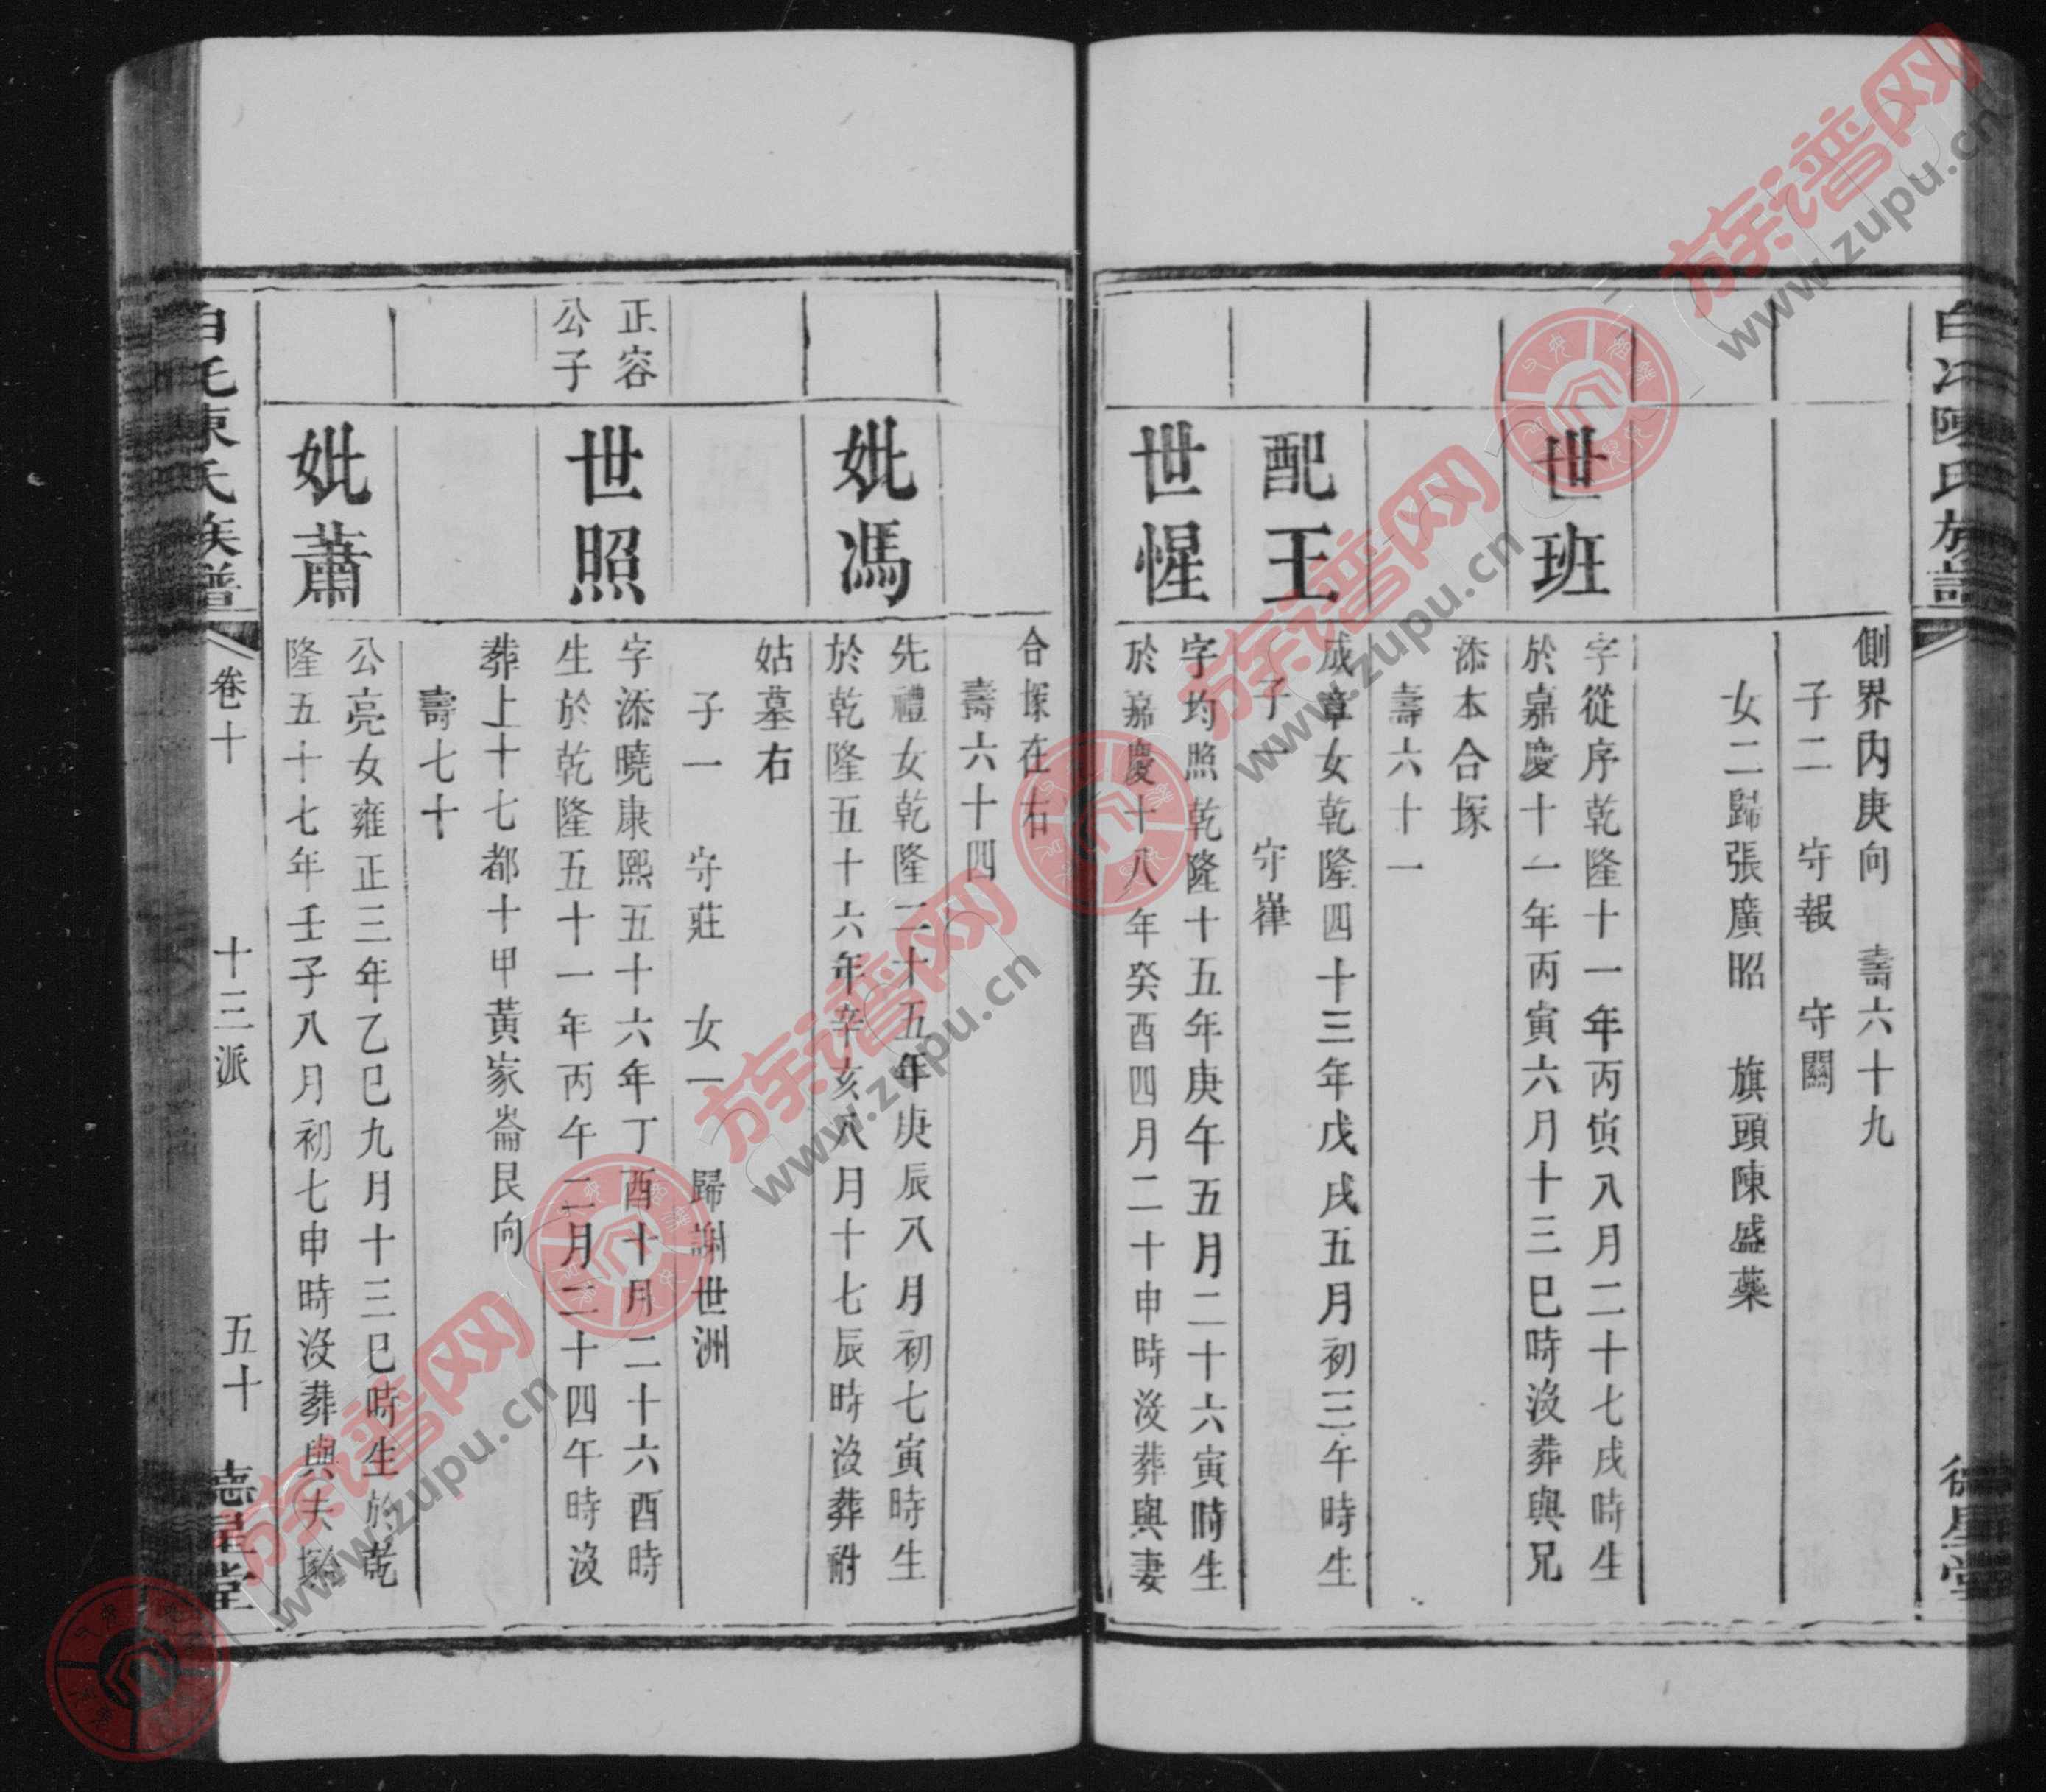 側界內庚向　壽六十九
子二　守報　守闗
女二歸張廣昭　旗頭陳盛藥
世班
字從序乾隆十一年丙寅八月二十七戌時生
於嘉慶十一年丙寅六月十三巳時沒葬與兄
添本合塚
壽六十一
配王
成章女乾隆四十三年戊戌五月初三午時生
子一　守嵂
世惺
字均照乾隆十五年庚午五月二十六寅時生
於嘉慶十八年癸酉四月二十申時沒葬與妻
合塚在右
壽六十四
妣馮
先禮女乾隆二十五年庚辰八月初七寅時生
於乾隆五十六年辛亥八月十七辰時沒葬祔
姑墓右
子一　守莊　女一　歸謝世洲
正容
公子
世照
字添曉康熙五十六年丁酉十月二十六酉時
生於乾隆五十一年丙午二月二十四午時沒
葬上十七都十甲黃家崙艮向
壽七十
妣蕭
公亮女雍正三年乙巳九月十三巳時生於乾
隆五十七年壬子八月初七申時沒葬與夫塚
陳氏族譜
卷十
十三派
五十
星堂
族谱网
www.zupu.cn
族谱网
www.zupu.cn
族谱网
www.zupu.cn
族谱网
www.zupu.cn